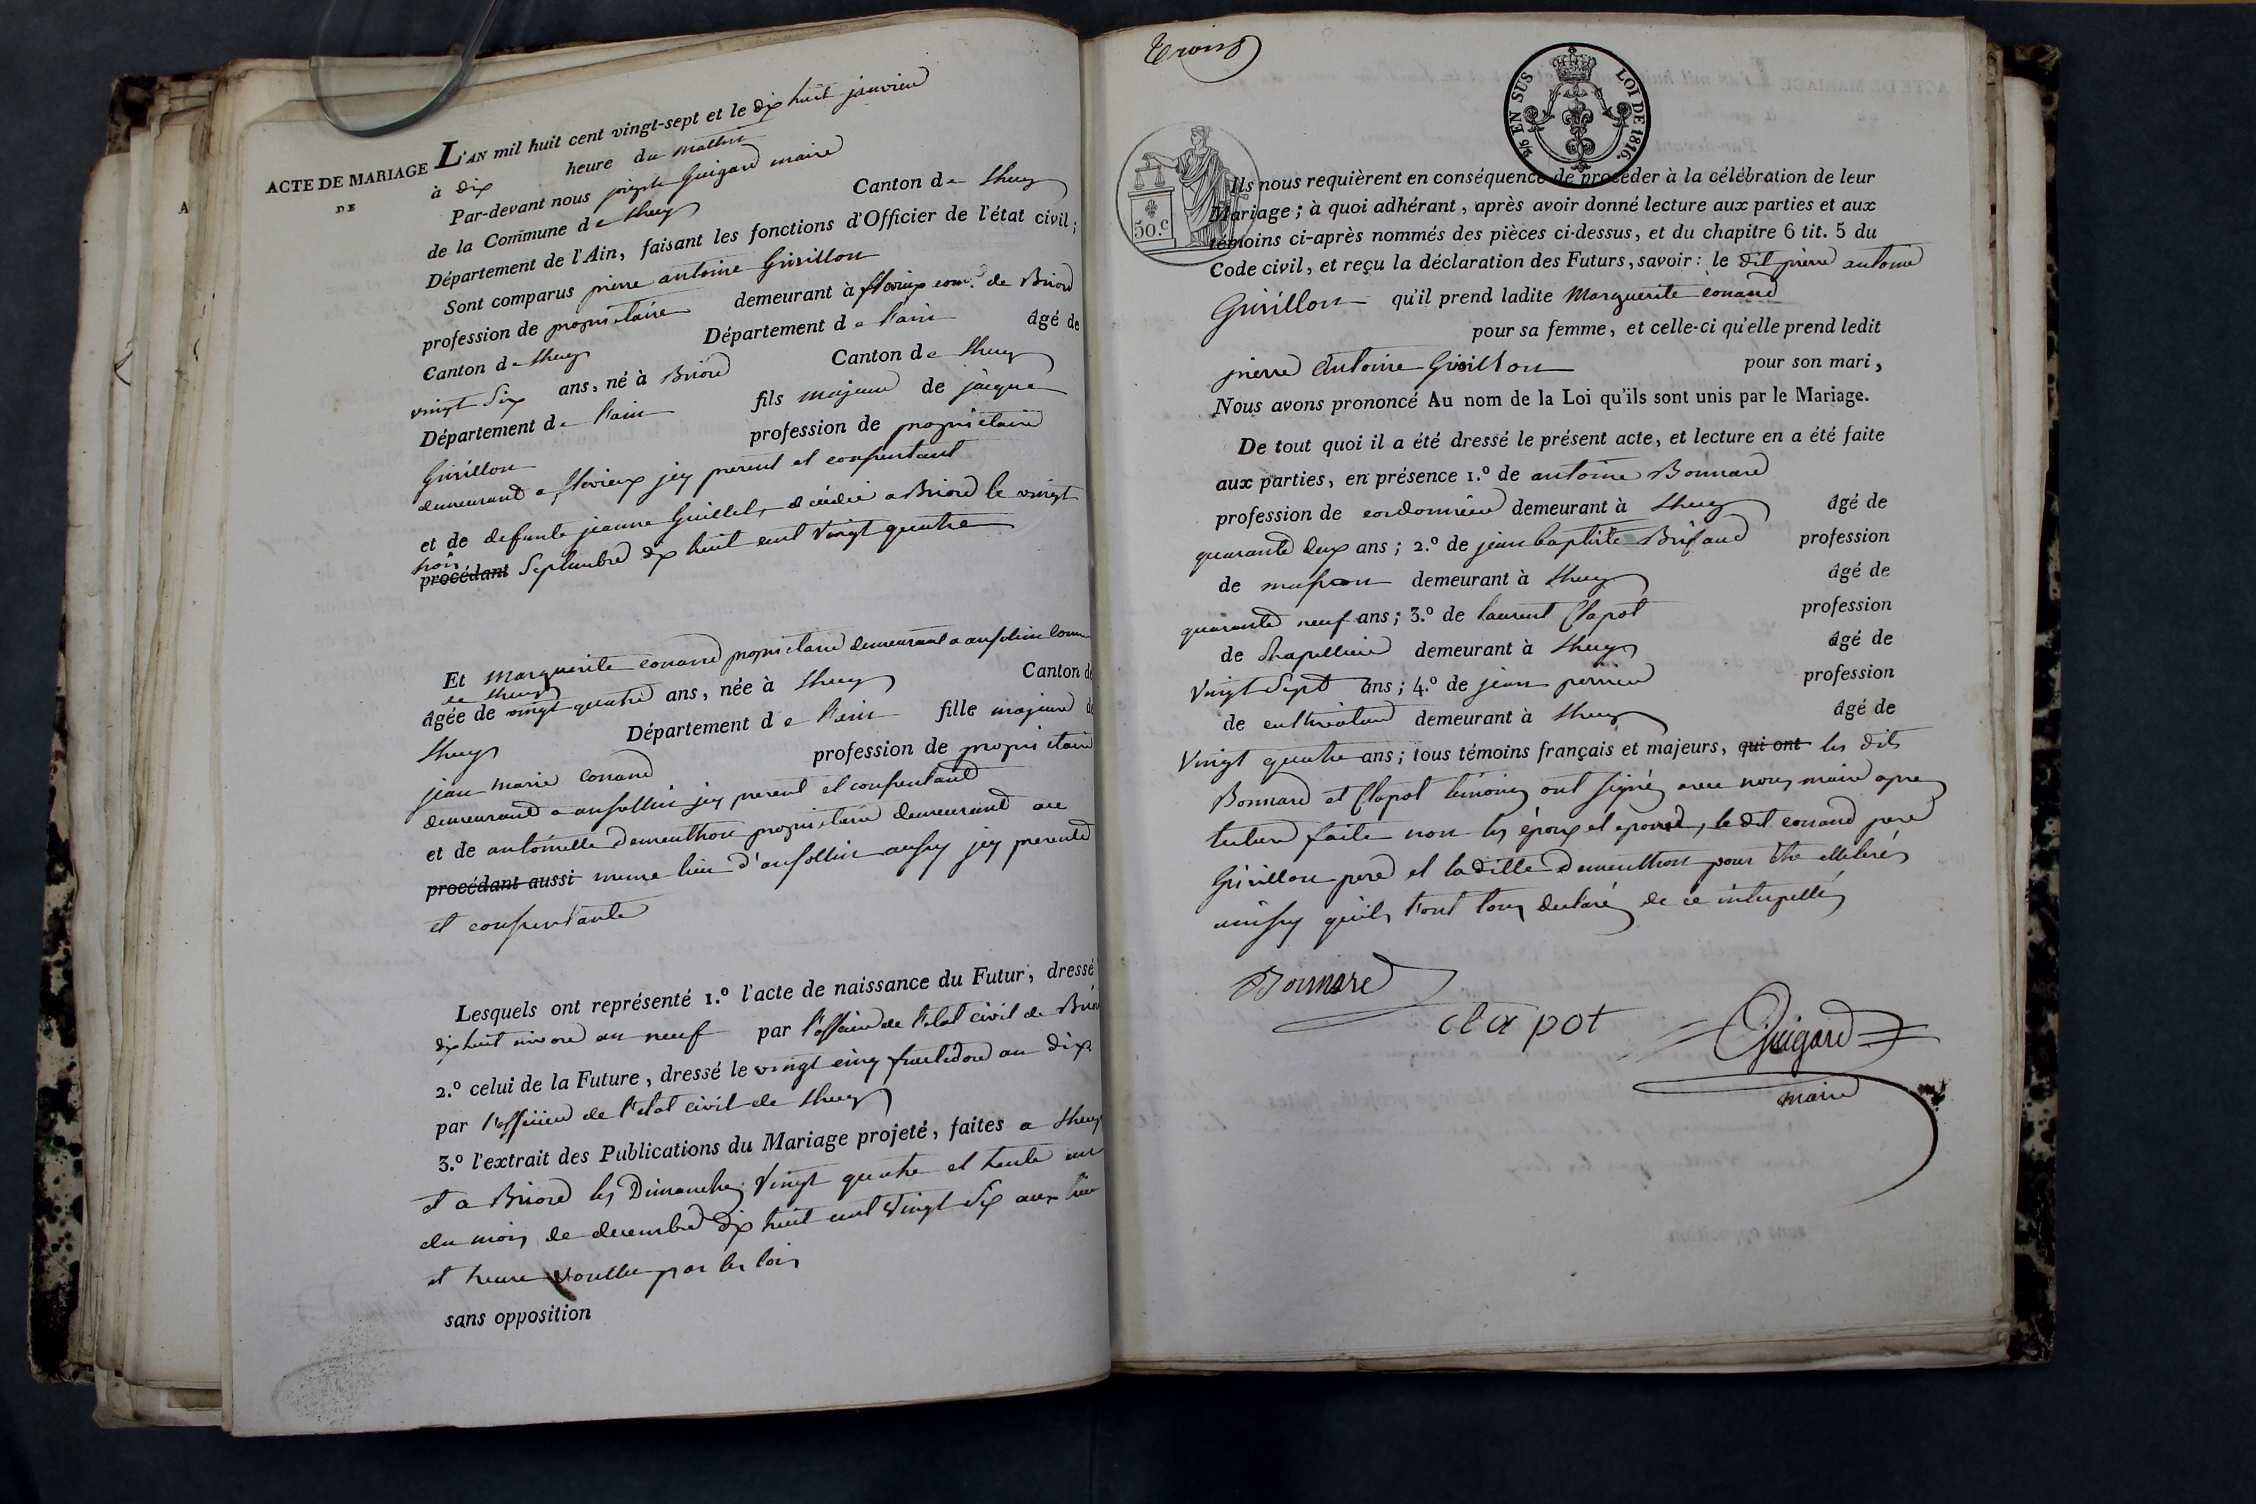 A
ACTE DE MARIAGE
DE
L'AN mil huit cent vingt-sept et le dix huit janvier
à dix heure du matin
Par-devant nous joseph Guigard maire
de la Commune de Lhuys Canton de Lhuys
Département de l'Ain, faisant les fonctions d'Officier de l'état civil;
Sont comparus pierre antoine Grisillon
profession de proprietaire demeurant à flevieux com.e de Briord
Canton de Lhuys Département de l'ain âgé de
vingt Six ans, né à Briord Canton de Lhuys
Département de l'ain fils majeur de jacque
Grisillon profession de proprietaire
demeurant a flevieux jcy present et consentant
et de defunte jeanne Guillet, décédée a Briord le vingt
trois
procédant Septembre dix huit cent vingt quatre
Et Marguerite conand proprietaire demeurant a ansolin comm
de Lhuys
âgée de vingt quatre ans, née à Lhuys Canton de
Lhuys Département de l'ain fille majeure de
jean marie Conand profession de proprietaire
demeurant a ansollin jcy present et consentant
et de antoinette Dementhon proprietaire demeurant au
procédant aussi meme lieu d'ansollin aussy jcy presente
et consentante
Lesquels ont représenté 1.º l'acte de naissance du Futur, dressé
dix huit nivore an neuf par l'officier de l'etat civil de Briord
2.º celui de la Future, dressé le vingt cinq fructidor an dix
par l'officier de l'etat civil de Lhuys
3.º l'extrait des Publications du Mariage projeté, faites a Lhuys
et a Briord les Dimanches vingt quatre et trente un
du mois de decembre dix huit cent vingt Six aux lieu
et heure voullu par les lois
sans opposition
Trois
2/5 EN SUS LOI DE 1816.
50.c
Ils nous requièrent en conséquence de procéder à la célébration de leur
Mariage; à quoi adhérant, après avoir donné lecture aux parties et aux
témoins ci-après nommés des pièces ci-dessus, et du chapitre 6 tit. 5 du
Code civil, et reçu la déclaration des Futurs, savoir: le dit pierre antoine
Grisillon qu'il prend ladite Marguerite conand
pour sa femme, et celle-ci qu'elle prend ledit
pierre Antoine Grisillon pour son mari,
Nous avons prononcé Au nom de la Loi qu'ils sont unis par le Mariage.
De tout quoi il a été dressé le présent acte, et lecture en a été faite
aux parties, en présence 1.º de antoine Bonnard
profession de cordonnier demeurant à Lhuys âgé de
quarante deux ans; 2.º de jean baptiste Brissaud profession
de masson demeurant à Lhuys âgé de
quarante neuf ans; 3.º de laurent Clapot profession
de Chapellier demeurant à Lhuys âgé de
vingt Sept ans; 4.º de jean perrier profession
de cultivateur demeurant à Lhuys âgé de
vingt quatre ans; tous témoins français et majeurs, qui ont les dits
Bonnard et Clapot témoins ont signé avec nous maire apres
lecture faite non les époux et epouse, le dit conand pere
Grisillon pere et la ditte Dementhon pour être illeteres
ainsy qu'ils l'ont tous declaré de ce interpellés
Bonnard
clapot
Guigard
maire